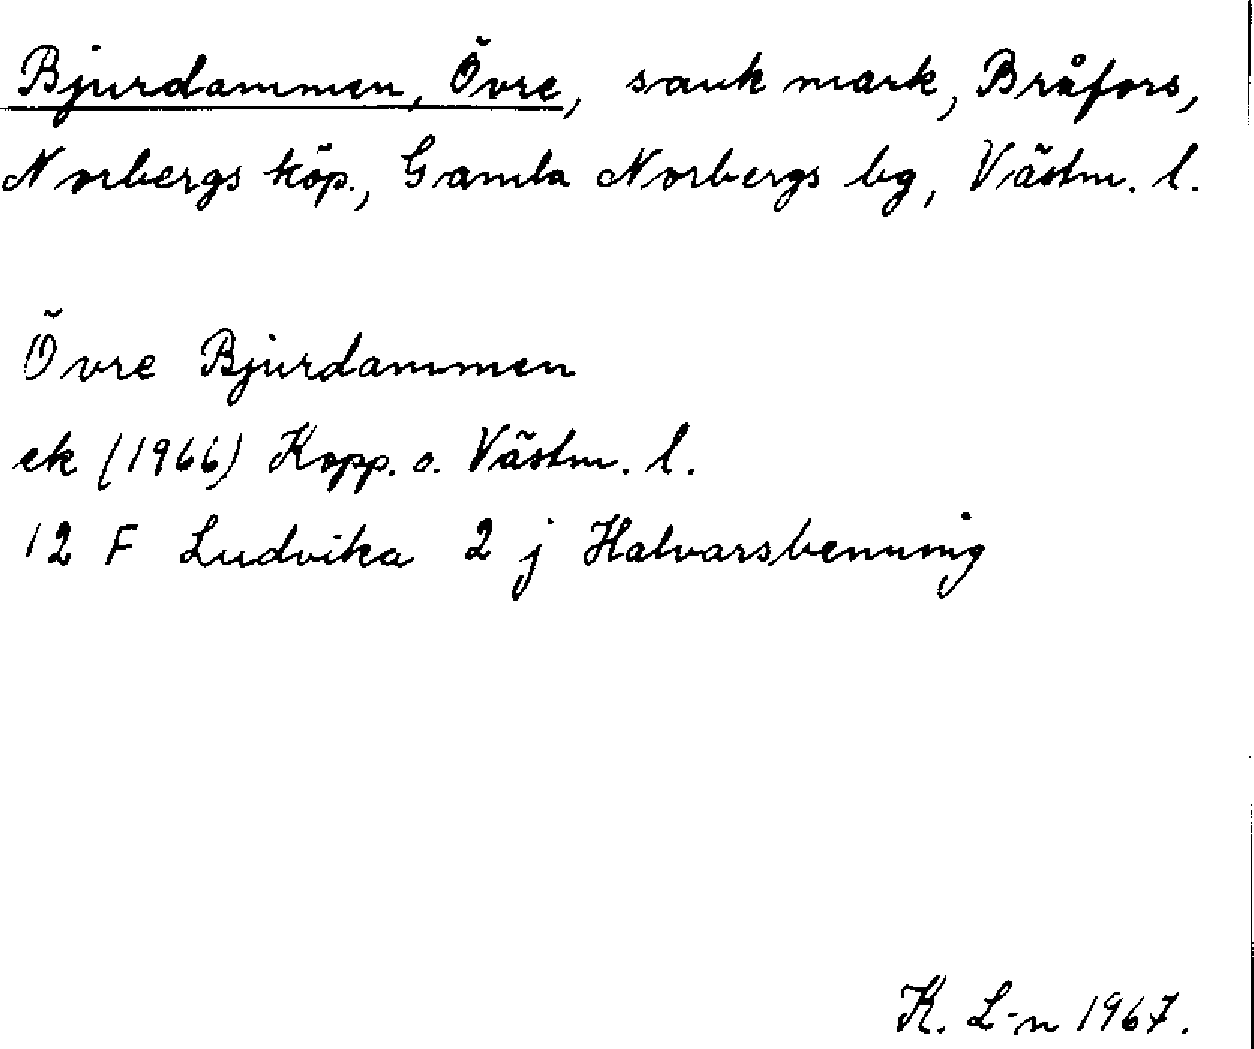 Bjurdammen, Övre, sank mark, Bråfors,
Norbergs köp., Gamla Norbergs bg, Västm. l.
Övre Bjurdammen
ek (1966) Kopp. o. Västm. l.
12 F Ludvika 2 j Halvarsbenning
K. L-n 1967.